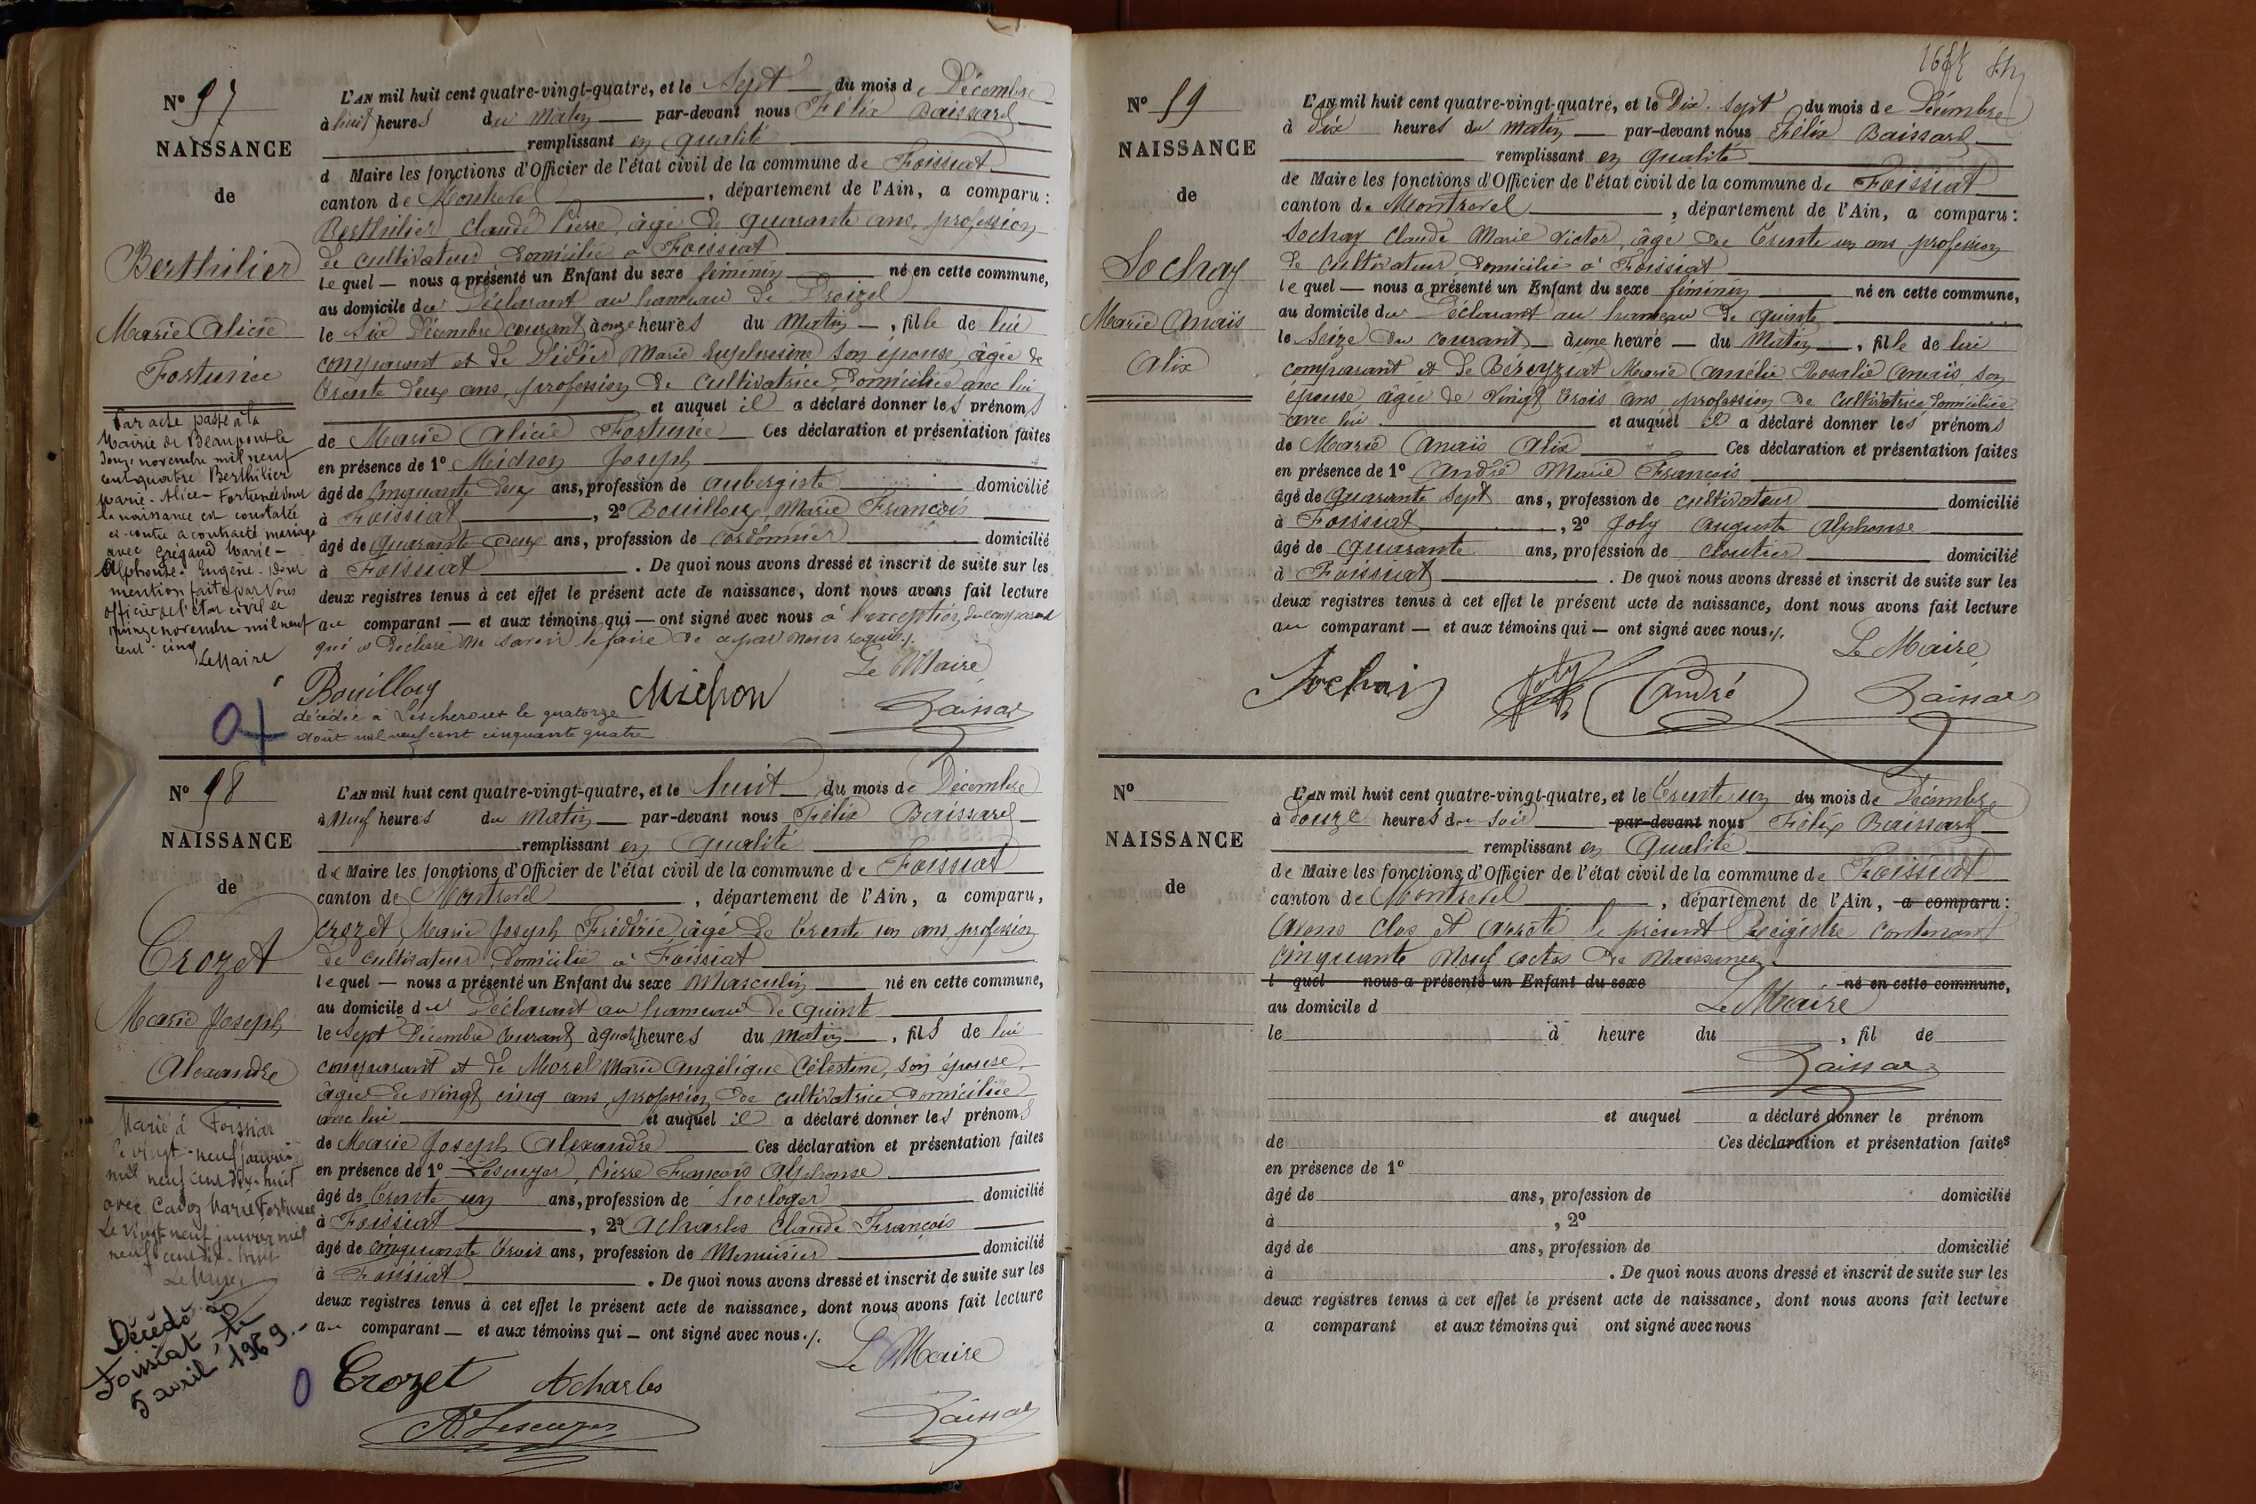 Nº 57
NAISSANCE
de
Berthilier
Marie Alicie
Fortunée
Par acte passé à la
Mairie de Beaupont le
douze novembre mil neuf
cent quatre Berthilier
Marie-Alice-Fortunée dont
la naissance est constatée
ci-contre a contracté mariage
avec Grégaud Marie-
Alphonse-Eugène. Dont
mention faite par Nous
officier de l'état civil le
quinze novembre mil neuf
cent cinq
Le Maire
L'AN mil huit cent quatre-vingt-quatre, et le Sept du mois de Décembre
à huit heures du Matin par-devant nous Félix Baissard
remplissant en qualité
d Maire les fonctions d'Officier de l'état civil de la commune de Foissiat
canton de Montrevel, département de l'Ain, a comparu:
Berthilier Claude Pierre, âgé de quarante ans, profession
de cultivateur domicilié à Foissiat
lequel — nous a présenté un Enfant du sexe féminin né en cette commune,
au domicile du Déclarant au hameau de
le six Décembre courant à onze heures du Matin, fille de lui
comparant et de Didier Marie Euphrosine son épouse, âgée de
trente deux ans, profession de cultivatrice, domiciliée avec lui
et auquel il a déclaré donner les prénoms
de Marie Alicie Fortunée Ces déclaration et présentation faites
en présence de 1º Michon Joseph
âgé de cinquante deux ans, profession de aubergiste domicilié
à Foissiat, 2º Bouilloux Marie François
âgé de quarante deux ans, profession de cordonnier domicilié
à Foissiat. De quoi nous avons dressé et inscrit de suite sur les
deux registres tenus à cet effet le présent acte de naissance, dont nous avons fait lecture
au comparant — et aux témoins qui — ont signé avec nous à l'exception du comparant
qui a déclaré ne savoir le faire de ce par nous requis ./.
Le Maire
Bouilloux Michon Baissard
décédée à Lescheroux le quatorze
août mil neuf cent cinquante quatre
Nº 58
NAISSANCE
de
Crozet
Marie Joseph
Alexandre
Marié à Foissiat
le vingt-neuf janvier
mil neuf cent dix-huit
avec Cadoz Marie Fortunée
Le vingt neuf janvier mil
neuf cent dix-huit
Le Maire
Décédé à
Foissiat, le
5 avril 1969.-
L'AN mil huit cent quatre-vingt-quatre, et le huit du mois de Décembre
à Neuf heures du Matin par-devant nous Félix Baissard
remplissant en Qualité
de Maire les fonctions d'Officier de l'état civil de la commune de Foissiat
canton de Montrevel, département de l'Ain, a comparu,
Crozet Marie Joseph Frédéric, âgé de trente un ans, profession
de cultivateur, domicilié à Foissiat
lequel — nous a présenté un Enfant du sexe Masculin né en cette commune,
au domicile du Déclarant au hameau de Quinte
le sept Décembre courant à quatre heures du Matin, fils de lui
comparant et de Morel Marie Angélique Célestine, son épouse,
âgée de vingt cinq ans, profession de cultivatrice domiciliée
avec lui et auquel il a déclaré donner les prénoms
de Marie Joseph Alexandre Ces déclaration et présentation faites
en présence de 1º Lescuyer, Pierre François Alphonse
âgé de trente un ans, profession de horloger domicilié
à Foissiat, 2º Acharles Claude François
âgé de cinquante trois ans, profession de Menuisier domicilié
à Foissiat. De quoi nous avons dressé et inscrit de suite sur les
deux registres tenus à cet effet le présent acte de naissance, dont nous avons fait lecture
au comparant — et aux témoins qui — ont signé avec nous ./.
Le Maire
Crozet Acharles
A. Lescuyer Baissard
Nº 59
NAISSANCE
de
Sochay
Marie Anaïs
Alix
L'AN mil huit cent quatre-vingt-quatre, et le Dix-sept du mois de Décembre
à dix heures du Matin par-devant nous Félix Baissard
remplissant en qualité
de Maire les fonctions d'Officier de l'état civil de la commune de Foissiat
canton de Montrevel, département de l'Ain, a comparu:
Sochay Claude Marie Victor, âgé de trente un ans profession
de cultivateur, domicilié à Foissiat
lequel — nous a présenté un Enfant du sexe féminin né en cette commune,
au domicile du Déclarant au hameau de Quinte
le Seize du courant à une heure du Matin, fille de lui
comparant et de Béreyziat Marie Amélie Rosalie Anaïs, son
épouse âgée de vingt trois ans, profession de cultivatrice, domiciliée
avec lui et auquel il a déclaré donner les prénoms
de Marie Anaïs Alix Ces déclaration et présentation faites
en présence de 1º André Marie François
âgé de quarante sept ans, profession de cultivateur domicilié
à Foissiat, 2º Joly Auguste Alphonse
âgé de quarante ans, profession de cloutier domicilié
à Foissiat. De quoi nous avons dressé et inscrit de suite sur les
deux registres tenus à cet effet le présent acte de naissance, dont nous avons fait lecture
au comparant — et aux témoins qui — ont signé avec nous ./.
Le Maire
Sochay Joly André Baissard
Nº
NAISSANCE
de
L'AN mil huit cent quatre-vingt-quatre, et le trente un du mois de Décembre
à Douze heures du soir par-devant nous Félix Baissard
remplissant en Qualité
de Maire les fonctions d'Officier de l'état civil de la commune de Foissiat
canton de Montrevel, département de l'Ain, a comparu:
Avons Clos et Arrêté le présent Registre contenant
cinquante Neuf actes de Naissance.
l quel nous a présenté un Enfant du sexe né en cette commune,
au domicile d Le Maire
le à heure du, fil de
Baissard
et auquel a déclaré donner le prénom
de Ces déclaration et présentation faites
en présence de 1º
âgé de ans, profession de domicilié
à, 2º
âgé de ans, profession de domicilié
à. De quoi nous avons dressé et inscrit de suite sur les
deux registres tenus à cet effet le présent acte de naissance, dont nous avons fait lecture
a comparant et aux témoins qui ont signé avec nous